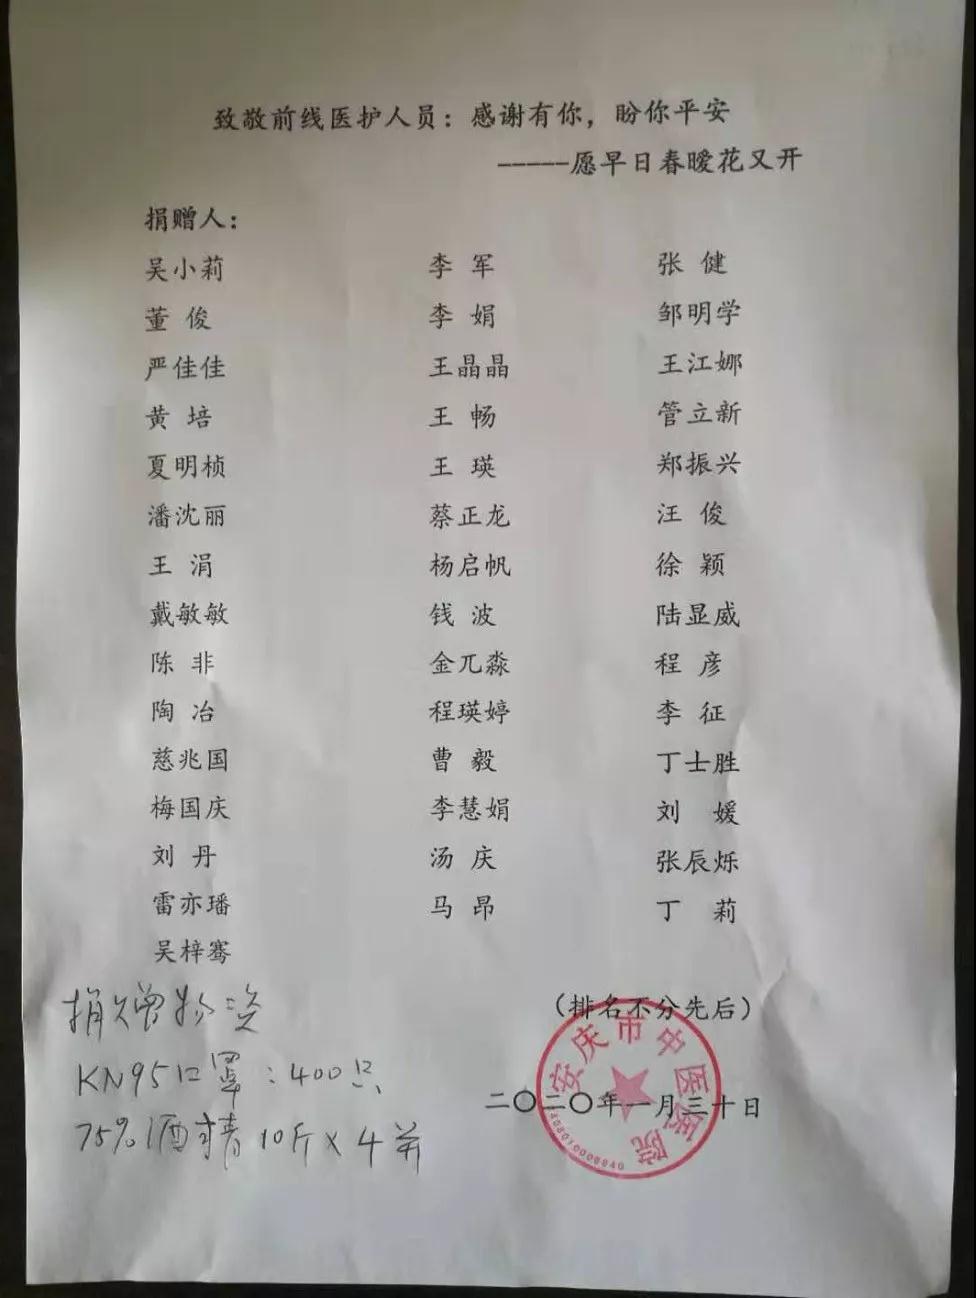 致敬前线医护人员：感谢有你，盼你平安
-----愿早日春暖花又开
捐赠人：
吴小莉 李 军 张 健
董 俊 李 娟 邹明学
严佳佳 王晶晶 王江娜
黄 培 王 畅 管立新
夏明桢 王 瑛 郑振兴
潘沈丽 蔡正龙 汪 俊
王 涓 杨启帆 徐 颖
戴敏敏 钱 波 陆显威
陈 非 金兀淼 程 彦
陶 冶 程瑛婷 李 征
慈兆国 曹 毅 丁士胜
梅国庆 李慧娟 刘 媛
刘 丹 汤 庆 张辰烁
雷亦璠 马 昂 丁 莉
吴梓骞
（排名不分先后）
捐赠物资
KN95口罩：400只
二〇二〇年一月三十日
75%酒精 10斤×4并
安庆市中医医院